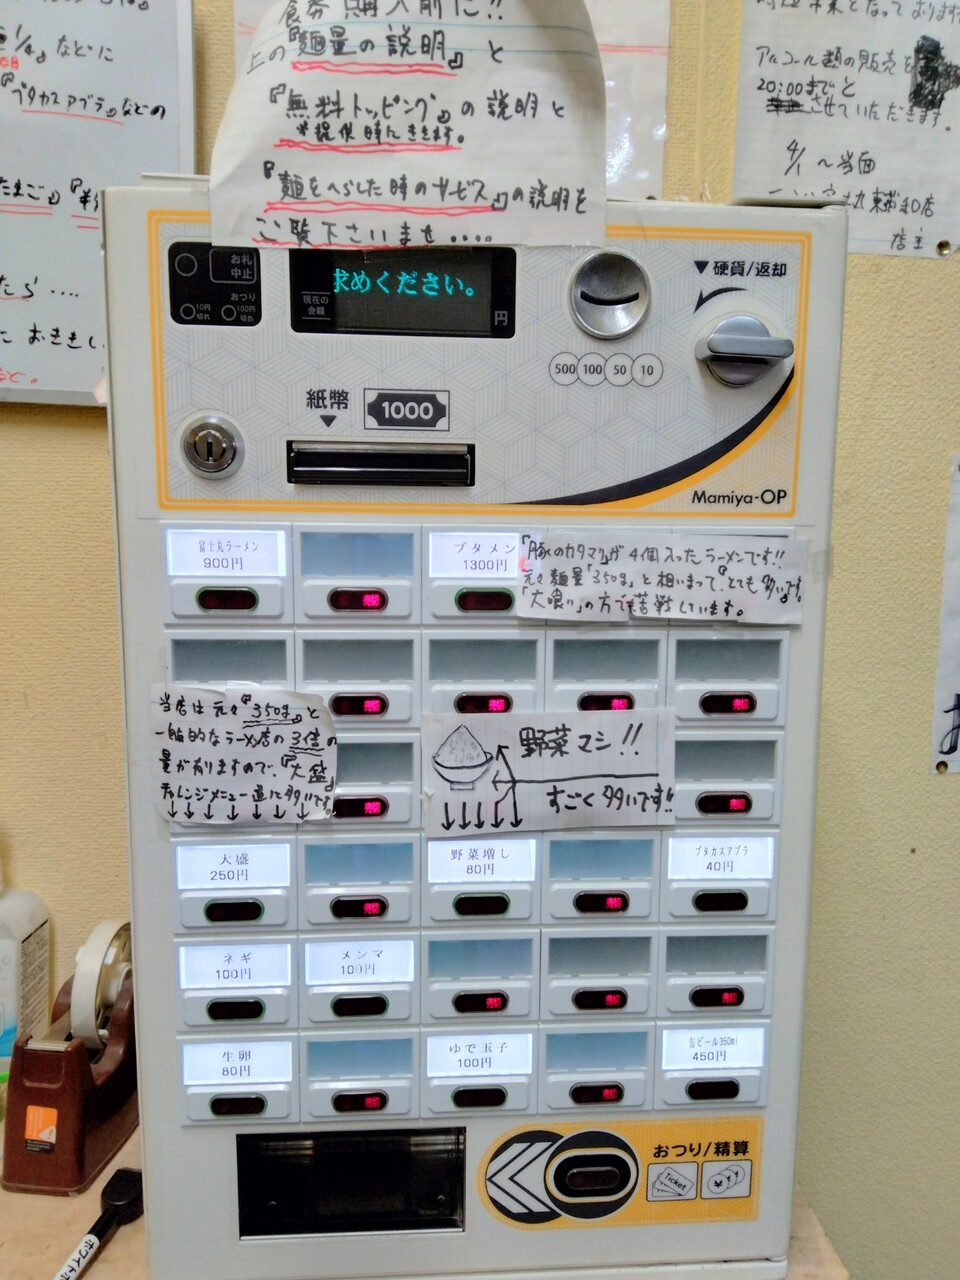 などに
『ブタカスアブラ』などの
食券購入前に!!
上の『麺量の説明』と
『無料トッピング』の説明と
※提供時にききます。
『麺をへらした時のサービス』の説明を
ご覧下さいませ....
アルコール類の販売を
20:00までと
させていただきます。
4/1〜当面
店主
お札
中止
おつり
10円
切れ
100円
切れ
求めください。
現在の
金額
円
▼硬貨/返却
500 100 50 10
紙幣
▼
1000
Mamiya-OP
富士丸ラーメン
900円
売切
ブタメン
1300円
『豚のカタマリ』が4個入ったラーメンです!!
元々麺量『350g』と相いまって、とても多いです。
「大喰い」の方でも苦戦しています。
売切
売切
売切
売切
当店は元々『350g』と
一般的なラーメン店の3倍の
量が有りますので、『大盛』
チャレンジメニュー並に多いです。
↓↓↓↓↓↓
売切
野菜マシ!!
すごく多いです!!
売切
大盛
250円
売切
野菜増し
80円
売切
ブタカスアブラ
40円
ネギ
100円
メンマ
100円
売切
売切
売切
生卵
80円
売切
ゆで玉子
100円
売切
缶ビール350ml
450円
おつり/精算
Ticket
¥
ホワイトボ